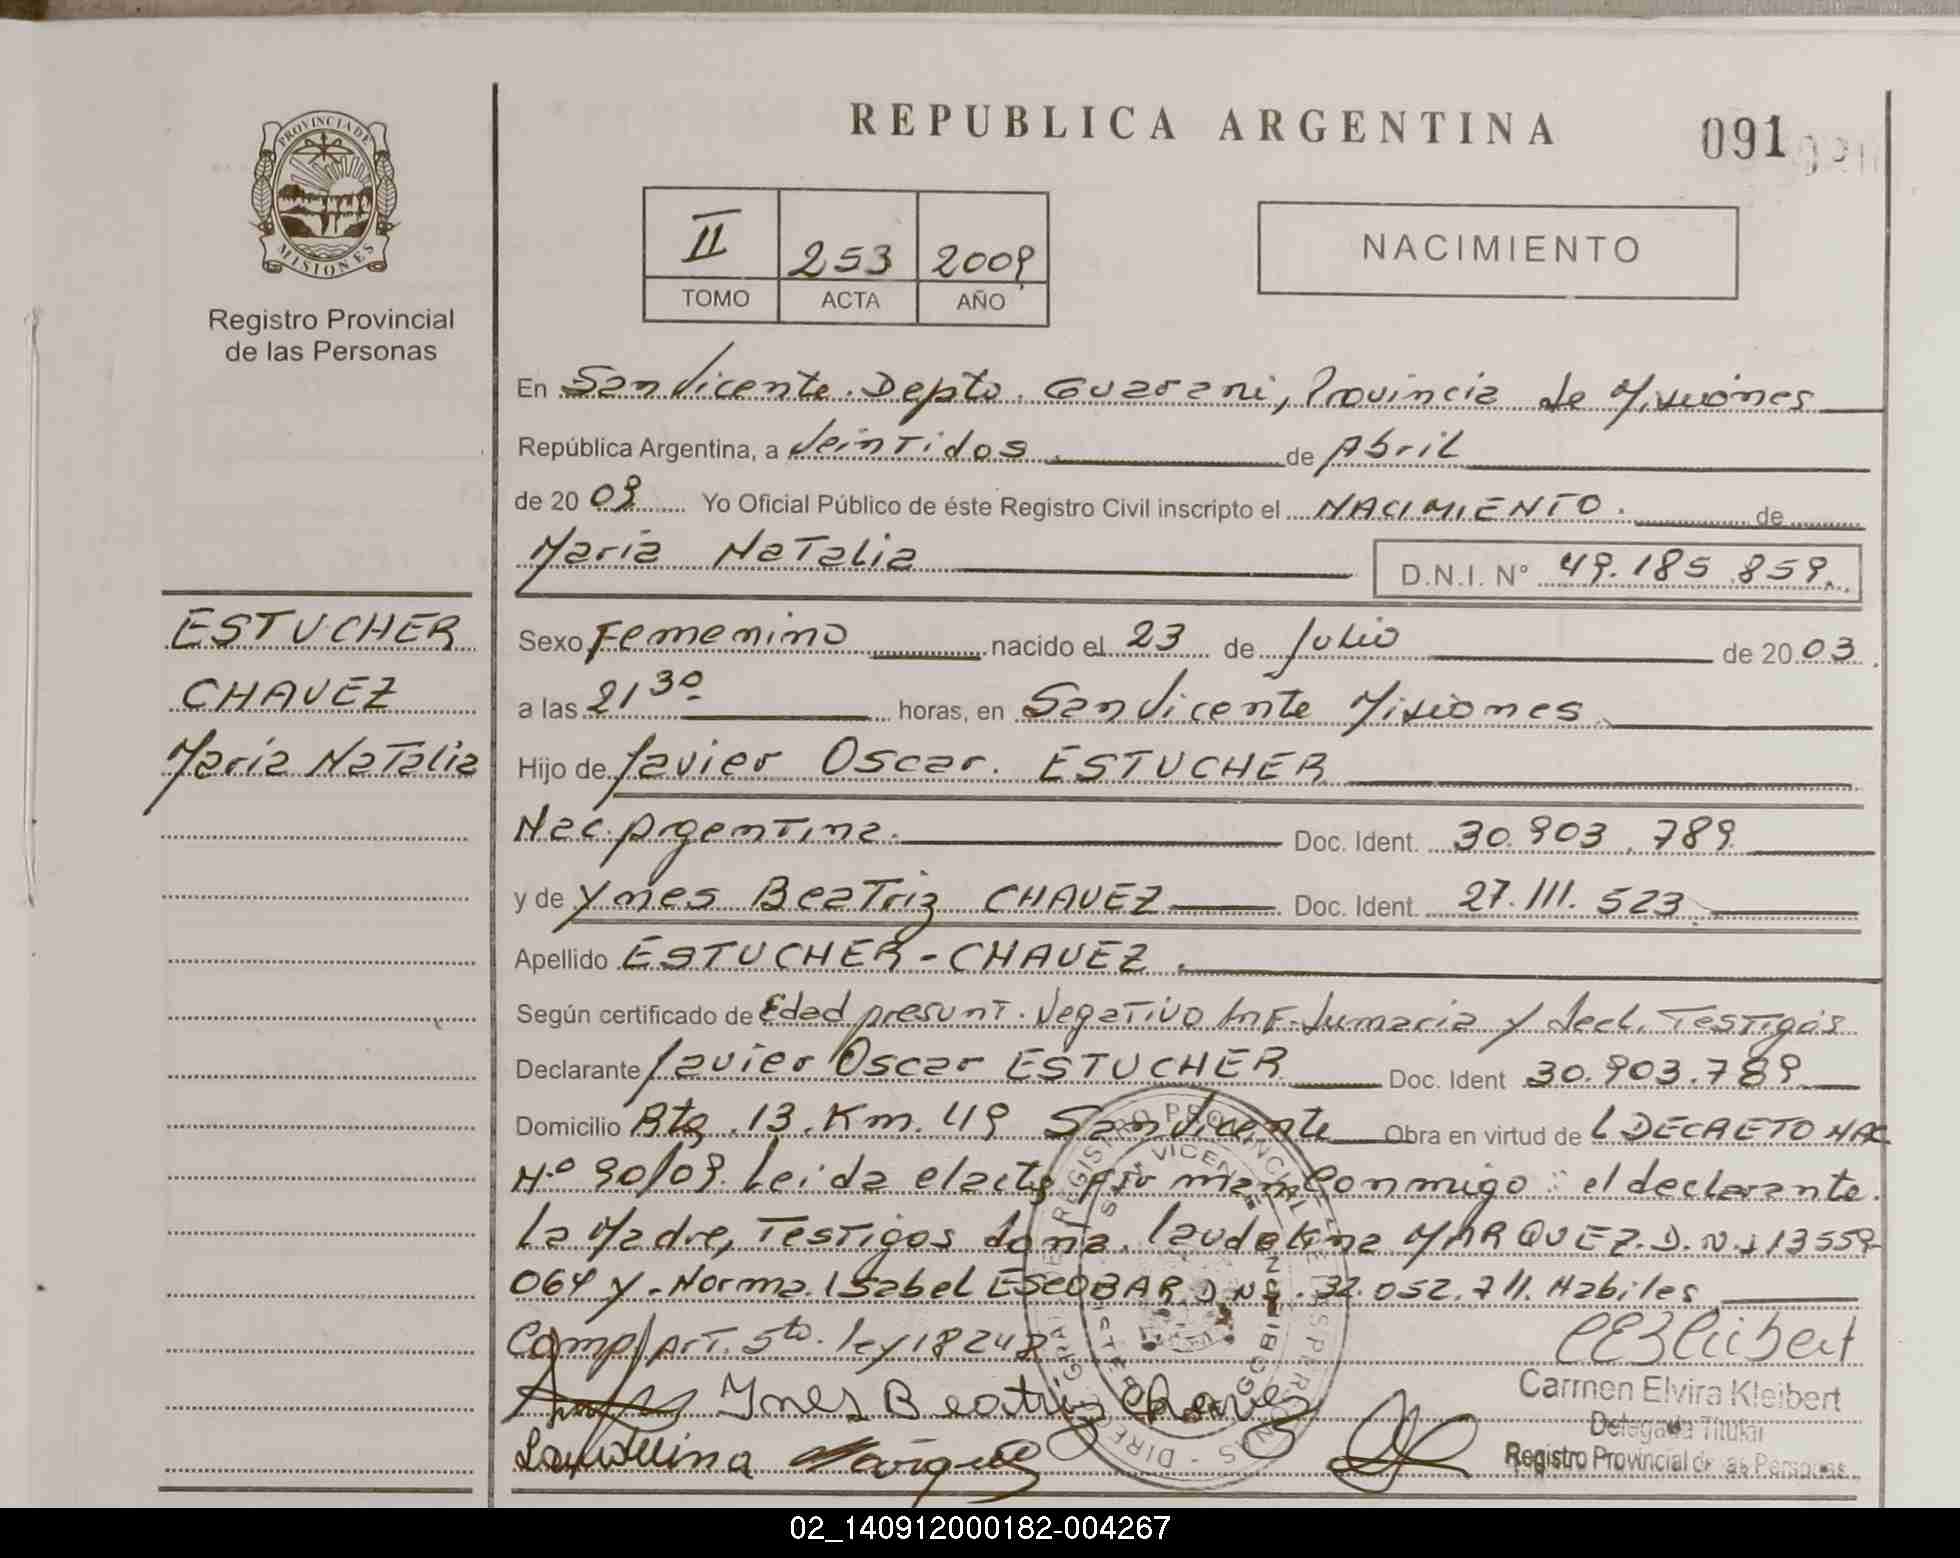 REPUBLICA ARGENTINA
091
PROVINCIA DE
MISIONES
Registro Provincial
de las Personas
II 253 2009
TOMO ACTA AÑO
NACIMIENTO
En San Vicente. Depto. Guarani, Provincia de Misiones
República Argentina, a Veintidos de Abril
de 20 09 Yo Oficial Público de éste Registro Civil inscripto el NACIMIENTO. de
María Natalia D.N.I. N° 49.185.859.
ESTUCHER
CHAVEZ
María Natalia
Sexo Femenino nacido el 23 de Julio de 20 03
a las 21 30 horas, en San Vicente Misiones
Hijo de Javier Oscar. ESTUCHER
Nac. Argentina. Doc. Ident. 30.903.789
y de Ynes Beatriz CHAVEZ Doc. Ident. 27.111.523
Apellido ESTUCHER-CHAVEZ.
Según certificado de Edad presunt. Negativo Inf. Sumaria y decl. Testigos
Declarante Javier Oscar ESTUCHER Doc. Ident 30.903.789
Domicilio Rta. 13. Km. 49 San Vicente Obra en virtud de l DECRETO NAC
N° 90/09. Leida el acta conmigo: el declarante.
La Madre, Testigos doña. Laudelina MARQUEZ. D.N.I 13559
064 y Norma. Isabel ESCOBAR D.N.I. 32.052.711. Habiles
Comp. Art. 5to. ley 18248
Ynes Beatriz Chavez
Laudelina Marquez
Carmen Elvira Kleibert
Delegada Titular
Registro Provincial de las Personas
02_140912000182-004267